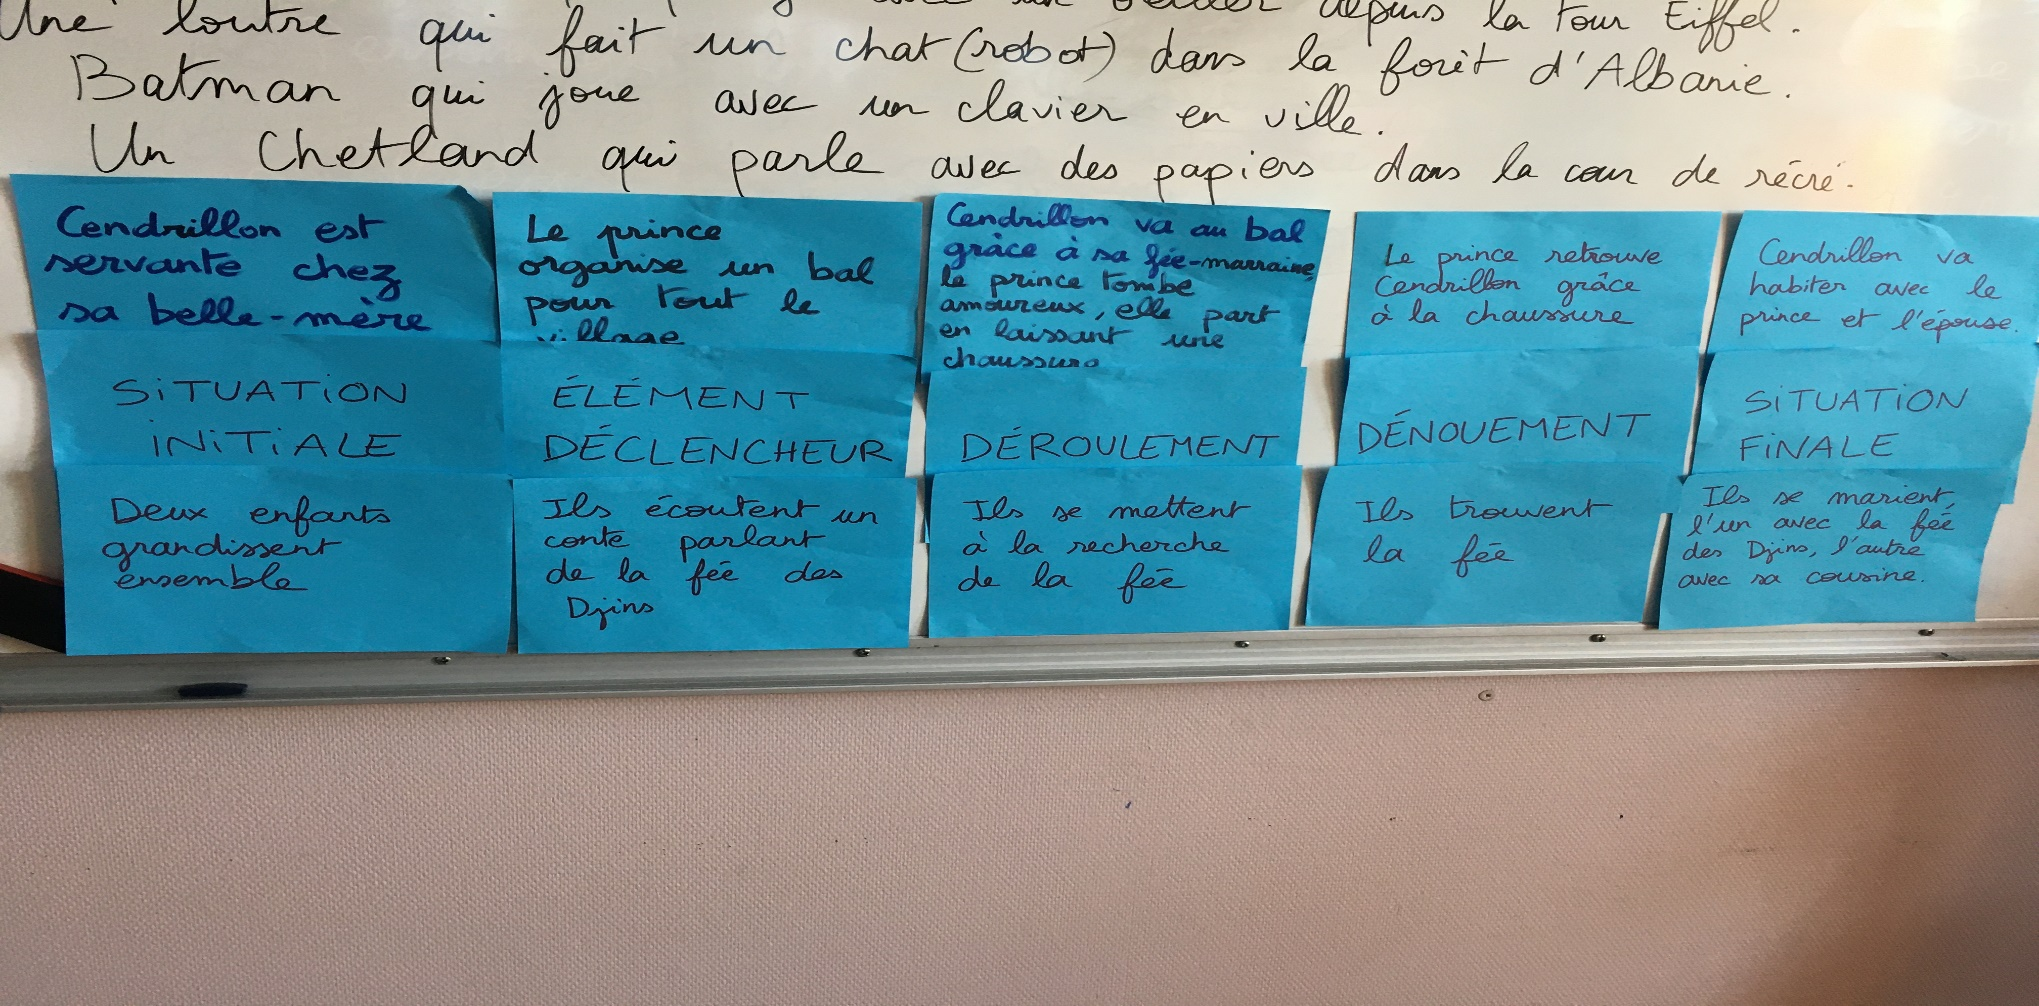 Une loutre qui fait un chat (robot) dans la forêt d'Albanie.
depuis la Tour Eiffel.
Batman qui joue avec un clavier en ville.
Un Chetland qui parle avec des papiers dans la cour de récré.
Cendrillon est
servante chez
sa belle-mère
Le prince
organise un bal
pour tout le
village
Cendrillon va au bal
grâce à sa fée-marraine,
le prince tombe
amoureux, elle part
en laissant une
chaussure
Le prince retrouve
Cendrillon grâce
à la chaussure
Cendrillon va
habiter avec le
prince et l'épouse.
SITUATION
INITIALE
ÉLÉMENT
DÉCLENCHEUR
DÉROULEMENT
DÉNOUEMENT
SITUATION
FINALE
Deux enfants
grandissent
ensemble
Ils écoutent un
conte parlant
de la fée des
Djins
Ils se mettent
à la recherche
de la fée
Ils trouvent
la fée
Ils se marient,
l'un avec la fée
des Djins, l'autre
avec sa cousine.